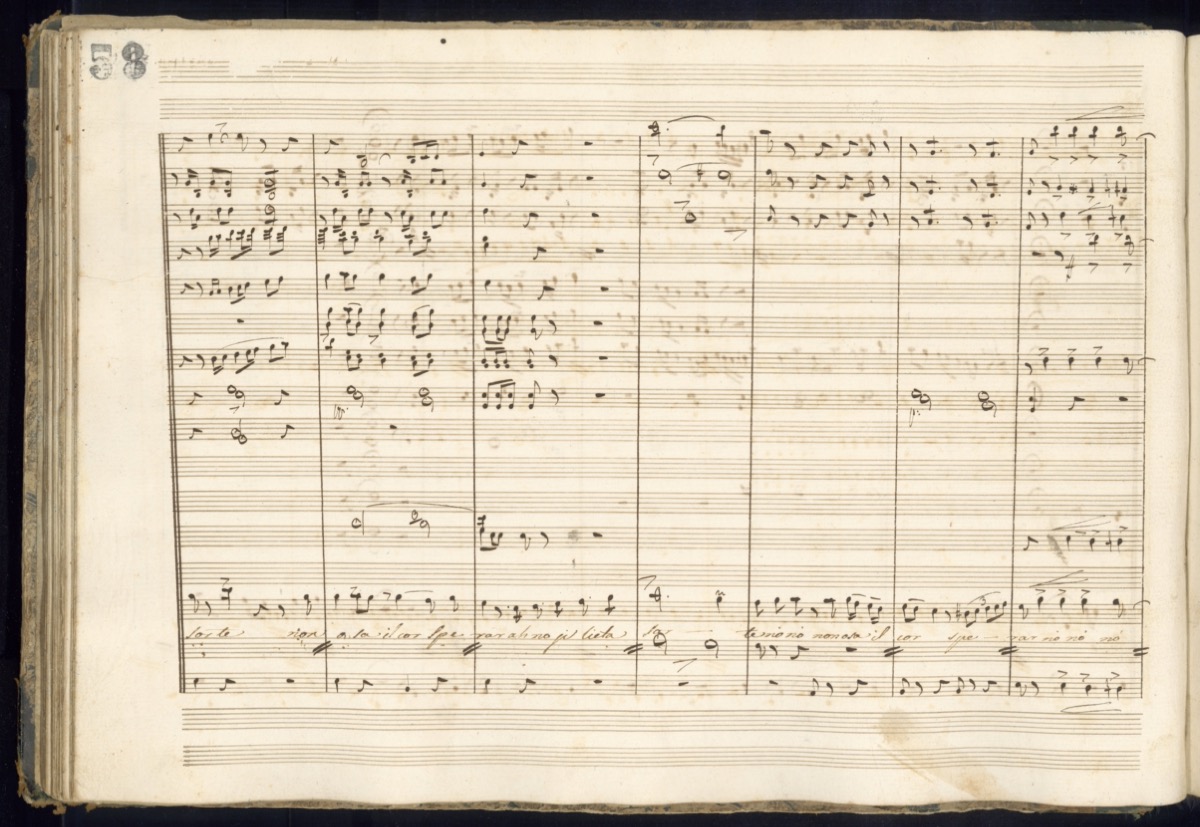 58
sorte non osa il cor sperar ah no più lieta sor - - - te no no non osa il cor spe - rar no no no